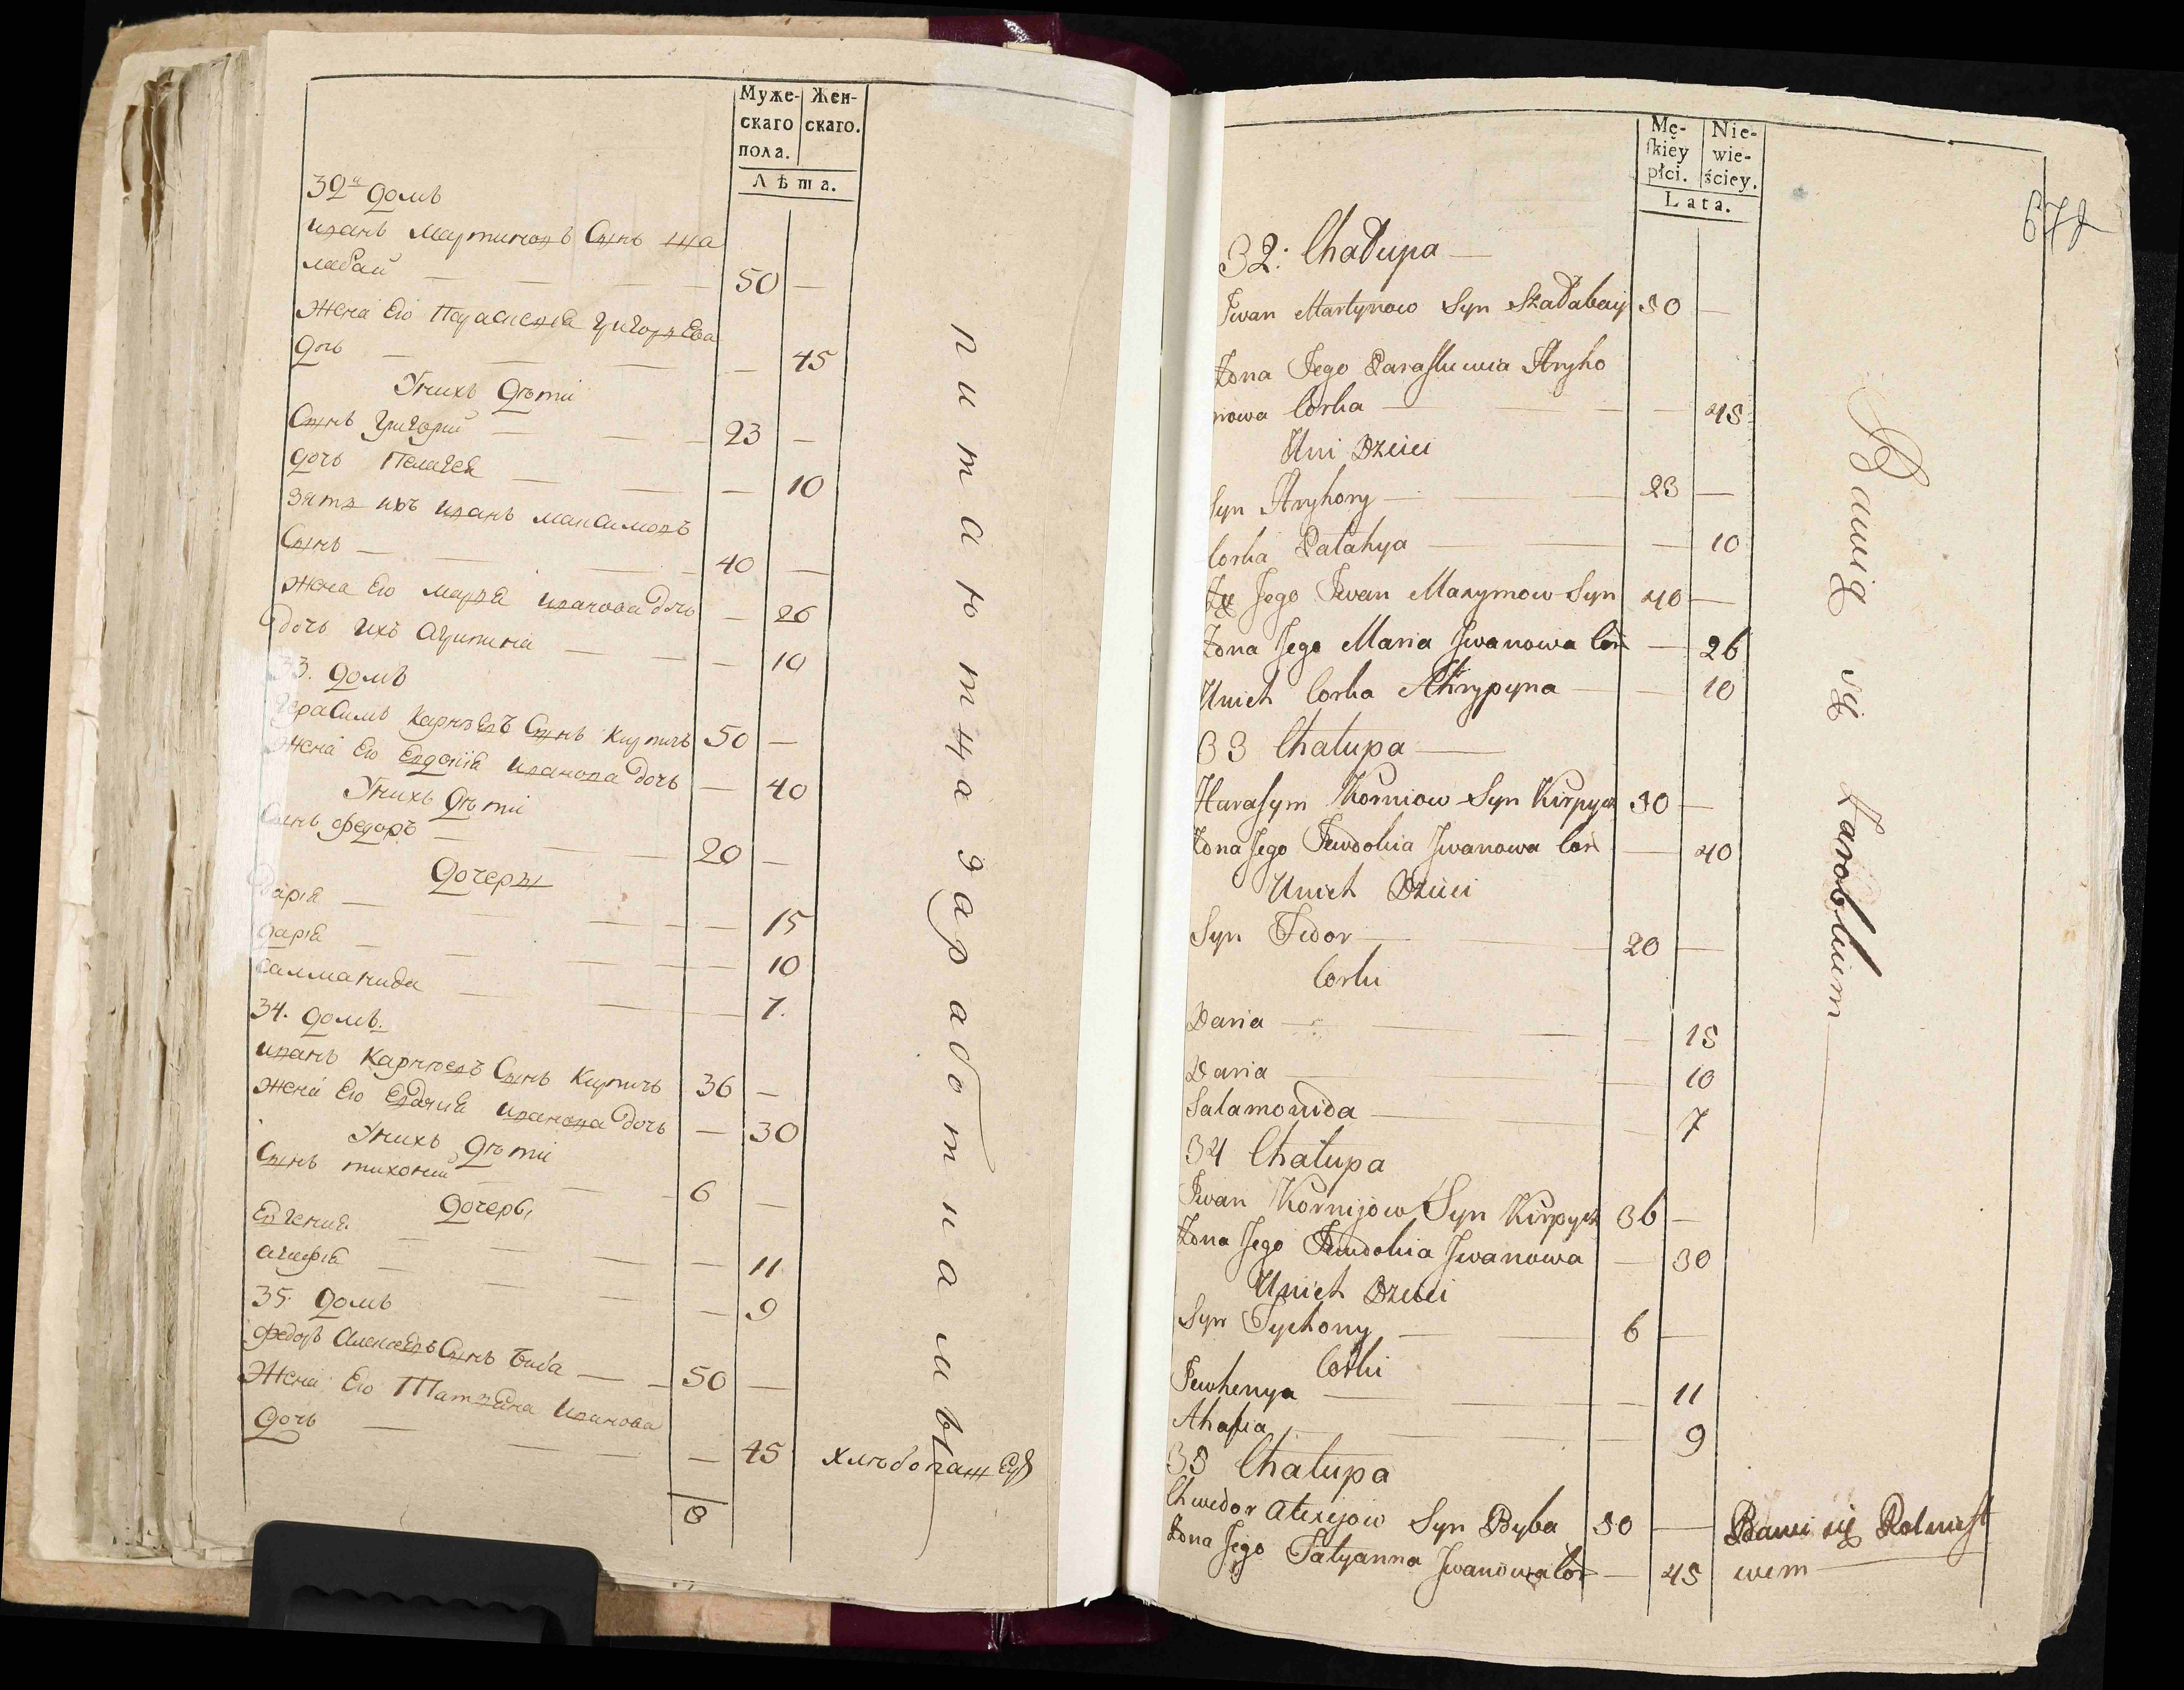 Муже-
скаго
пола.
Жен-
скаго.
Лѣта.
32й домъ
иванъ мартиновъ Сынъ ша
лабай — 50 —
жена Его Параскевiя григорьева
дочь — — 45
Унихъ дѣти
Сынъ григорий — 23 —
дочь Пелагея — — 10
зять ихъ иванъ максимовъ
Сынъ — 40 —
жена Его марья иванова дочь — 26
дочь ихъ агрипина — — 10
33. домъ
герасимъ карнѣевъ Сынъ кирпичъ 50 —
жена Его Евдокiя иванова дочь — 40
Унихъ дѣти
Сынъ федоръ — 20 —
дочеры
дарiя — — 15
дарiя — — 10
саламанида — — 7.
34. домъ.
иванъ карнѣевъ Сынъ кирпичъ 36 —
жена Его Евдокия иванова дочь — 30
Унихъ дѣти
Сынъ тихоний — 6 —
дочеры
Евгения — — 11
агафiя — — 9
35. домъ
федоръ алексѣевъ Сынъ биба — 50 —
жена Его Татьяна иванова
дочь — — 45
8
питаютца заработками
хлѣбопашеству
Mę-
ſkiey
płci.
Nie-
wie-
ściey.
Lata.
32: Chałupa —
Jwan Martynow Syn Szałabaij 50 —
Żona Jego Paraskiewia Hryho
rowa Corka — — 45
Uni Dzieci
Syn Hryhory — 23 —
Corka Pałahya — — 10
Zięć Jego Jwan Maxymow Syn 40 —
Żona Jego Maria Jwanowa Cor — 26
Unich Corka Ahrypyna — — 10
33 Chałupa —
Haraſym Korniow Syn Kirpycz 50 —
Żona Jego Jewdokia Jwanowa Cor — 40
Unich Dzieci
Syn Fedor — 20 —
Corki
Daria — — 15
Daria — — 10
Salamonida — — 7
34 Chałupa
Jwan Kornijow Syn Kirpycz 36 —
Żona Jego Jewdokia Jwanowa — 30
Unich Dzieci
Syn Tychony — 6 —
Corki
Jewhenya — — 11
Ahafia — — 9
35 Chałupa
Chwedor Alexijow Syn Byba 50 —
Żona Jego Tatyanna Jwanowa Cor — 45
Bawią się Zarobkiem
Bawi się Rolnicſt
wem